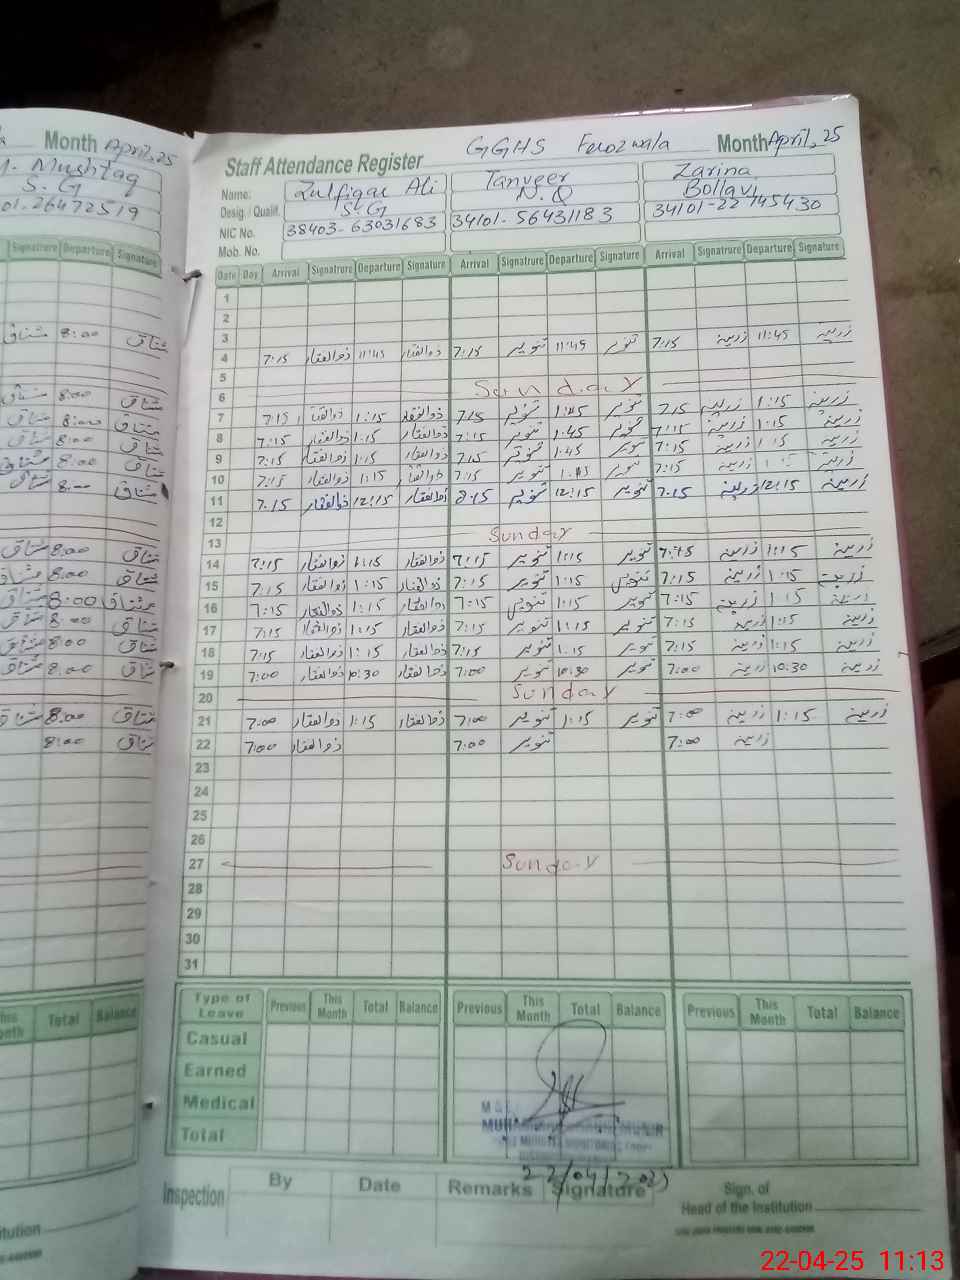 Month April, 25
M. Mushtaq
S.G
Signature Departure Signature
مشتاق 8:00 مشتاق
مشتاق 8:00 مشتاق
8:00 مشتاق
8:00 مشتاق
مشتاق 8:00 مشتاق
مشتاق 8:00 مشتاق
مشتاق 8:00 مشتاق
مشتاق 8:00 مشتاق
مشتاق 8:00 مشتاق
مشتاق 8:00 مشتاق
مشتاق 8:00 مشتاق
مشتاق 8:00 مشتاق
مشتاق 8:00 مشتاق
8:00 مشتاق
This Month Total Balance
GGHS Ferozwala Month April, 25
Staff Attendance Register
Name: Zulfiqar Ali Tanveer Zarina
Desig. / Qualif. S.G N.Q
NIC No. 38403-63031683 34101-56431183 34101-22745430
Mob. No.
Date Day Arrival Signatrure Departure Signature Arrival Signatrure Departure Signature Arrival Signatrure Departure Signature
1
2
3
4 7:15 ذوالفقار 11:45 ذوالفقار 7:15 تنویر 11:45 تنویر 7:15 زرینہ 11:45 زرینہ
5
6 Sunday
7 7:15 ذوالفقار 1:15 ذوالفقار 7:15 تنویر 1:45 تنویر 7:15 زرینہ 1:15 زرینہ
8 7:15 ذوالفقار 1:15 ذوالفقار 7:15 تنویر 1:45 تنویر 7:15 زرینہ 1:15 زرینہ
9 7:15 ذوالفقار 1:15 ذوالفقار 7:15 تنویر 1:45 تنویر 7:15 زرینہ 1:15 زرینہ
10 7:15 ذوالفقار 1:15 ذوالفقار 7:15 تنویر تنویر 7:15 زرینہ 1:15 زرینہ
11 7:15 ذوالفقار 12:15 ذوالفقار تنویر 12:15 تنویر 7:15 زرینہ 12:15 زرینہ
12
13 Sunday
14 7:15 ذوالفقار 1:15 ذوالفقار 7:15 تنویر 1:15 تنویر 7:15 زرینہ 1:15 زرینہ
15 7:15 ذوالفقار 1:15 ذوالفقار 7:15 تنویر 1:15 تنویر 7:15 زرینہ 1:15 زرینہ
16 7:15 ذوالفقار 1:15 ذوالفقار 7:15 تنویر 1:15 تنویر 7:15 زرینہ 1:15 زرینہ
17 7:15 ذوالفقار 1:15 ذوالفقار 7:15 تنویر 1:15 تنویر 7:15 زرینہ 1:15 زرینہ
18 7:15 ذوالفقار 1:15 ذوالفقار 7:15 تنویر 1:15 تنویر 7:15 زرینہ 1:15 زرینہ
19 7:00 ذوالفقار 10:30 ذوالفقار 7:00 تنویر 10:30 تنویر 7:00 زرینہ 10:30 زرینہ
20 Sunday
21 7:00 ذوالفقار 1:15 ذوالفقار 7:00 تنویر 1:15 تنویر 7:00 زرینہ 1:15 زرینہ
22 7:00 ذوالفقار 7:00 تنویر 7:00 زرینہ
23
24
25
26
27 Sunday
28
29
30
31
Type of Leave Previous This Month Total Balance Previous This Month Total Balance Previous This Month Total Balance
Casual
Earned
Medical
Total
22/04/2025
Inspection By Date Remarks Signature Sign. of Head of the Institution
22-04-25 11:13